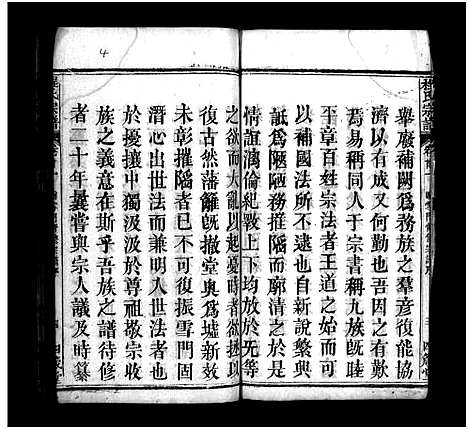 舉廢補闕爲務族之羣彥復能協
濟以有成又何勤也吾讀之有歎
焉易稱同人于宗書稱九族旣睦
平章百姓宗法者王道之始而可
以補國法所不逮也自新說繁興
詆爲陋陋務摧陷而廓清之於是
情誼漓倫紀斁上下均放於无等
之欲而大亂以起憂時者從拯以
復古然藩籬旣撤堂奥爲墟新效
未彰摧陷者已不可復振雪門獨
潛心出世法而兼明人世法者也
於擾攘中獨汲汲於尊祖敬宗收
族之義意在斯乎吾族之譜待修
者二十年曩嘗與宗人議及時纂
4